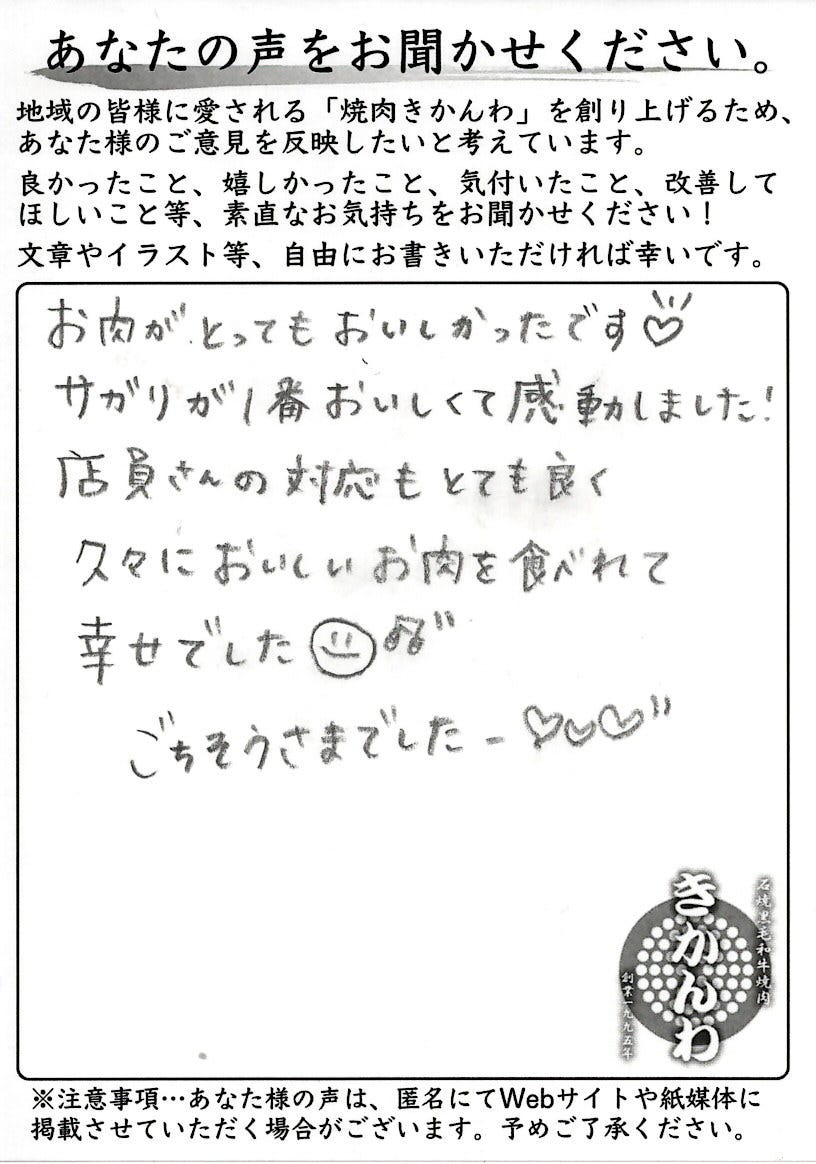 あなたの声をお聞かせください。
地域の皆様に愛される「焼肉きかんわ」を創り上げるため、
あなた様のご意見を反映したいと考えています。
良かったこと、嬉しかったこと、気付いたこと、改善して
ほしいこと等、素直なお気持ちをお聞かせください！
文章やイラスト等、自由にお書きいただければ幸いです。
お肉がとってもおいしかったです♡
サガリが1番おいしくて感動しました!
店員さんの対応もとても良く
久々においしいお肉を食べれて
幸せでした
ごちそうさまでしたー♡♡♡
石焼黒毛和牛焼肉
きかんわ
創業一九九五年
※注意事項…あなた様の声は、匿名にてWebサイトや紙媒体に
掲載させていただく場合がございます。予めご了承ください。